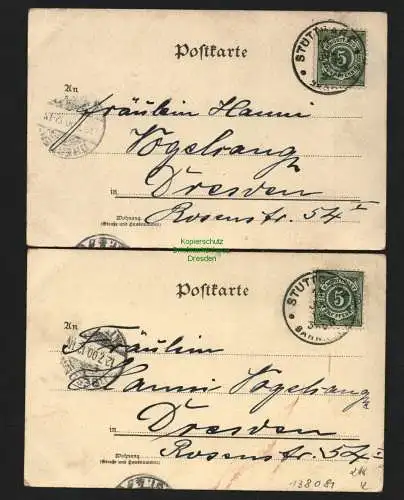 Postkarte
STUTTGART
5
An
Fräulein Hanni
Vogelsang
in Dresden
Wohnung
(Straße und Hausnummer)
Rosenstr. 54 I
Kopierschutz
Dresden
Postkarte
STUTTGART
5
An
Fräulein
Hanni Vogelsang
in Dresden
Wohnung
(Straße und Hausnummer)
Rosenstr. 54 I
138081